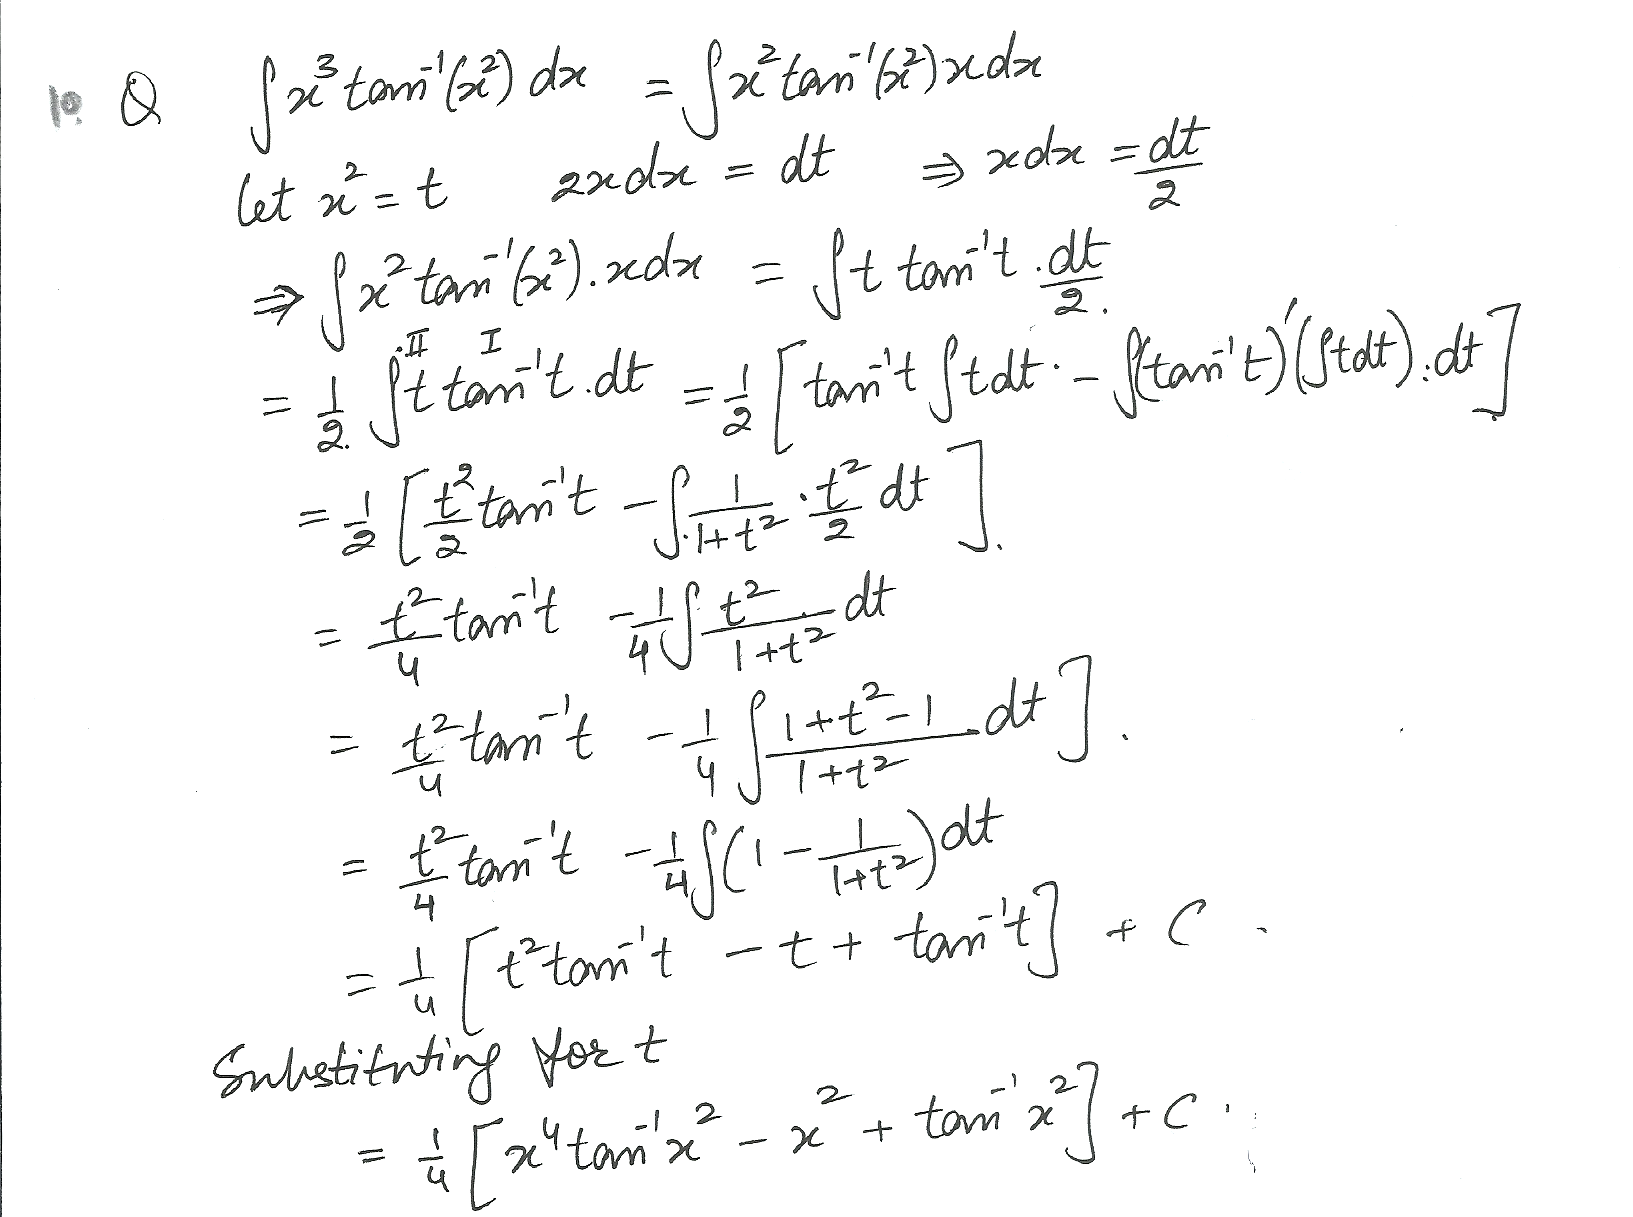 10. Q ∫x³ tan⁻¹(x²) dx = ∫x² tan⁻¹(x²) x dx
let x² = t 2x dx = dt ⇒ x dx = dt/2
⇒ ∫x² tan⁻¹(x²). x dx = ∫t tan⁻¹t . dt/2.
II I
= 1/2. ∫t tan⁻¹t . dt = 1/2 [tan⁻¹t ∫t dt - ∫(tan⁻¹t)′(∫t dt).dt]
= 1/2 [t²/2 tan⁻¹t - ∫ 1/(1+t²) · t²/2 dt].
= t²/4 tan⁻¹t - 1/4 ∫ t²/(1+t²) dt
= t²/4 tan⁻¹t - 1/4 ∫ (1+t²-1)/(1+t²) dt].
= t²/4 tan⁻¹t - 1/4 ∫(1 - 1/(1+t²)) dt
= 1/4 [t² tan⁻¹t - t + tan⁻¹t] + C.
Substituting for t
= 1/4 [x⁴ tan⁻¹x² - x² + tan⁻¹x²] + C.